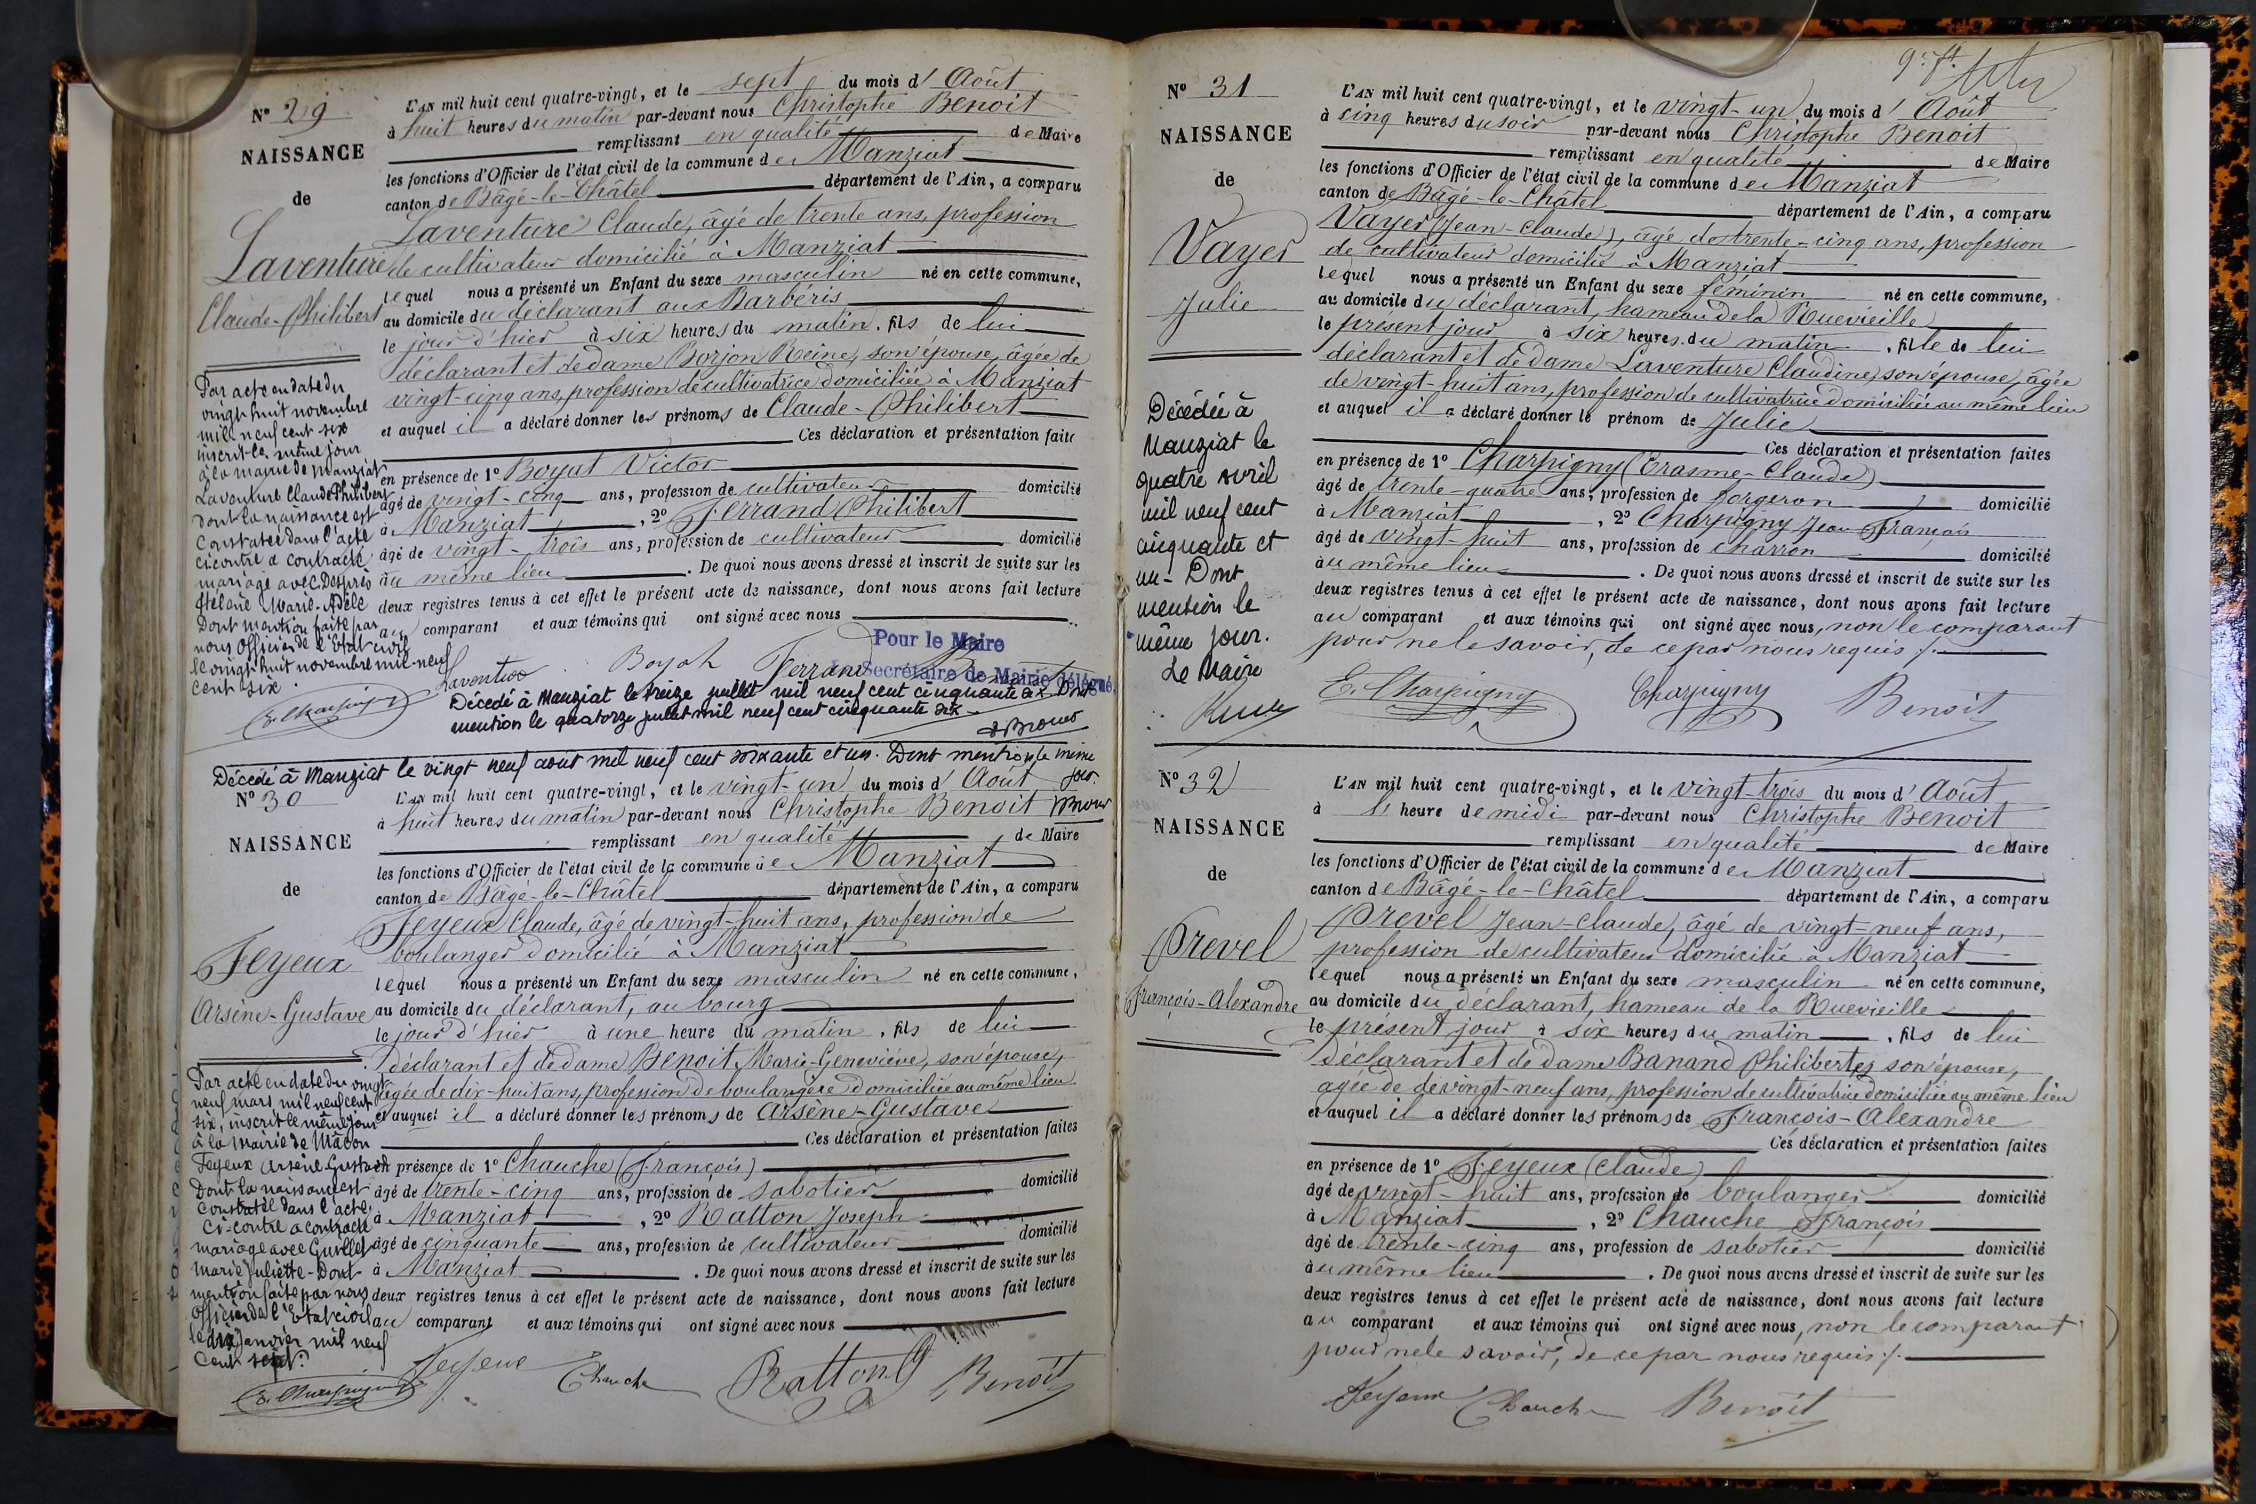 Nº 29
NAISSANCE
de
Laventure
Claude-Philibert
L'AN mil huit cent quatre-vingt, et le sept du mois d'Août
à huit heures du matin par-devant nous Christophe Benoit
remplissant en qualité de Maire
les fonctions d'Officier de l'état civil de la commune de Manziat
canton de Bâgé-le-Châtel département de l'Ain, a comparu
Laventure Claude, âgé de trente ans, profession
de cultivateur domicilié à Manziat
lequel nous a présenté un Enfant du sexe masculin né en cette commune,
au domicile du déclarant aux Barbéris
le jour d'hier à six heures du matin, fils de lui
déclarant et de dame Borjon Reine, son épouse, âgée de
vingt-cinq ans, profession de cultivatrice domiciliée à Manziat
et auquel il a déclaré donner les prénoms de Claude-Philibert
Ces déclaration et présentation faites
en présence de 1º Boyat Victor
âgé de vingt-cinq ans, profession de cultivateur domicilié
à Manziat, 2º Ferrand Philibert
âgé de vingt-trois ans, profession de cultivateur domicilié
au même lieu. De quoi nous avons dressé et inscrit de suite sur les
deux registres tenus à cet effet le présent acte de naissance, dont nous avons fait lecture
au comparant et aux témoins qui ont signé avec nous
Par acte en date du
vingt huit novembre
mil neuf cent six
inscrit le même jour
à la mairie de Manziat
Laventure Claude Philibert
dont la naissance est
constatée dans l'acte
ci contre a contracté
mariage avec Després
Hélène Marie-Adèle
Dont mention faite par
nous Officier de l'Etat civil
le vingt huit novembre mil neuf
cent six.
E. Charpigny
Laventure Boyat Ferrand Benoit
Pour le Maire
Le Secrétaire de Mairie délégué,
Décédé à Manziat le treize juillet mil neuf cent cinquante six Dont
mention le quatorze juillet mil neuf cent cinquante six
Décédé à Manziat le vingt neuf août mil neuf cent soixante et un. Dont mention le même
jour.
Nº 30
NAISSANCE
de
Feyeux
Arsène-Gustave
L'AN mil huit cent quatre-vingt, et le vingt-un du mois d'Août
à huit heures du matin par-devant nous Christophe Benoit
remplissant en qualité de Maire
les fonctions d'Officier de l'état civil de la commune de Manziat
canton de Bâgé-le-Châtel département de l'Ain, a comparu
Feyeux Claude, âgé de vingt-huit ans, profession de
boulanger domicilié à Manziat
lequel nous a présenté un Enfant du sexe masculin né en cette commune,
au domicile du déclarant, au bourg
le jour d'hier à une heure du matin, fils de lui
déclarant et de dame Benoit Marie-Geneviève, son épouse,
âgée de dix-huit ans, profession de boulangère domiciliée au même lieu
et auquel il a déclaré donner les prénoms de Arsène-Gustave
Ces déclaration et présentation faites
en présence de 1º Chauche (François)
âgé de trente-cinq ans, profession de sabotier domicilié
à Manziat, 2º Ratton Joseph
âgé de cinquante ans, profession de cultivateur domicilié
à Manziat. De quoi nous avons dressé et inscrit de suite sur les
deux registres tenus à cet effet le présent acte de naissance, dont nous avons fait lecture
au comparant et aux témoins qui ont signé avec nous
Par acte en date du vingt
neuf mars mil neuf cent
six, inscrit le même jour
à la mairie de Mâcon
Feyeux Arsène Gustave
Dont la naissance est
constatée dans l'acte
ci-contre a contracté
mariage avec Guillet
Marie Juliette - Dont
mention faite par nous
Officier de l'Etat civil
le dix janvier mil neuf
cent sept.
E. Charpigny
Feyeux Chauche Ratton Benoit
Nº 31
NAISSANCE
de
Vayer
Julie
L'AN mil huit cent quatre-vingt, et le vingt-un du mois d'Août
à cinq heures du soir par-devant nous Christophe Benoit
remplissant en qualité de Maire
les fonctions d'Officier de l'état civil de la commune de Manziat
canton de Bâgé-le-Châtel département de l'Ain, a comparu
Vayer (Jean-Claude), âgé de trente-cinq ans, profession
de cultivateur domicilié à Manziat
lequel nous a présenté un Enfant du sexe féminin né en cette commune,
au domicile du déclarant, hameau de la Ruevieille
le présent jour à six heures du matin, fille de lui
déclarant et de dame Laventure Claudine, son épouse, âgée
de vingt-huit ans, profession de cultivatrice domiciliée au même lieu
et auquel il a déclaré donner le prénom de Julie
Ces déclaration et présentation faites
en présence de 1º Charpigny (Erasme-Claude)
âgé de trente-quatre ans, profession de forgeron domicilié
à Manziat, 2º Charpigny Jean François
âgé de vingt-huit ans, profession de charron domicilié
au même lieu. De quoi nous avons dressé et inscrit de suite sur les
deux registres tenus à cet effet le présent acte de naissance, dont nous avons fait lecture
au comparant et aux témoins qui ont signé avec nous, non le comparant
pour ne le savoir, de ce par nous requis /.
Décédée à
Manziat le
quatre avril
mil neuf cent
cinquante et
un - Dont
mention le
même jour.
Le Maire
E. Charpigny Charpigny Benoit
Nº 32
NAISSANCE
de
Prevel
François-Alexandre
L'AN mil huit cent quatre-vingt, et le vingt-trois du mois d'Août
à l' heure de midi par-devant nous Christophe Benoit
remplissant en qualité de Maire
les fonctions d'Officier de l'état civil de la commune de Manziat
canton de Bâgé-le-Châtel département de l'Ain, a comparu
Prevel Jean-Claude, âgé de vingt-neuf ans,
profession de cultivateur domicilié à Manziat
lequel nous a présenté un Enfant du sexe masculin né en cette commune,
au domicile du déclarant, hameau de la Ruevieille
le présent jour à six heures du matin, fils de lui
déclarant et de dame Banand Philiberte, son épouse,
agée de de vingt-neuf ans, profession de cultivatrice domiciliée au même lieu
et auquel il a déclaré donner les prénoms de François-Alexandre
Ces déclaration et présentation faites
en présence de 1º Feyeux (Claude)
âgé de vingt-huit ans, profession de boulanger domicilié
à Manziat, 2º Chauche François
âgé de trente-cinq ans, profession de sabotier domicilié
au même lieu. De quoi nous avons dressé et inscrit de suite sur les
deux registres tenus à cet effet le présent acte de naissance, dont nous avons fait lecture
au comparant et aux témoins qui ont signé avec nous, non le comparant
pour ne le savoir, de ce par nous requis /.
Feyeux Chauche Benoit